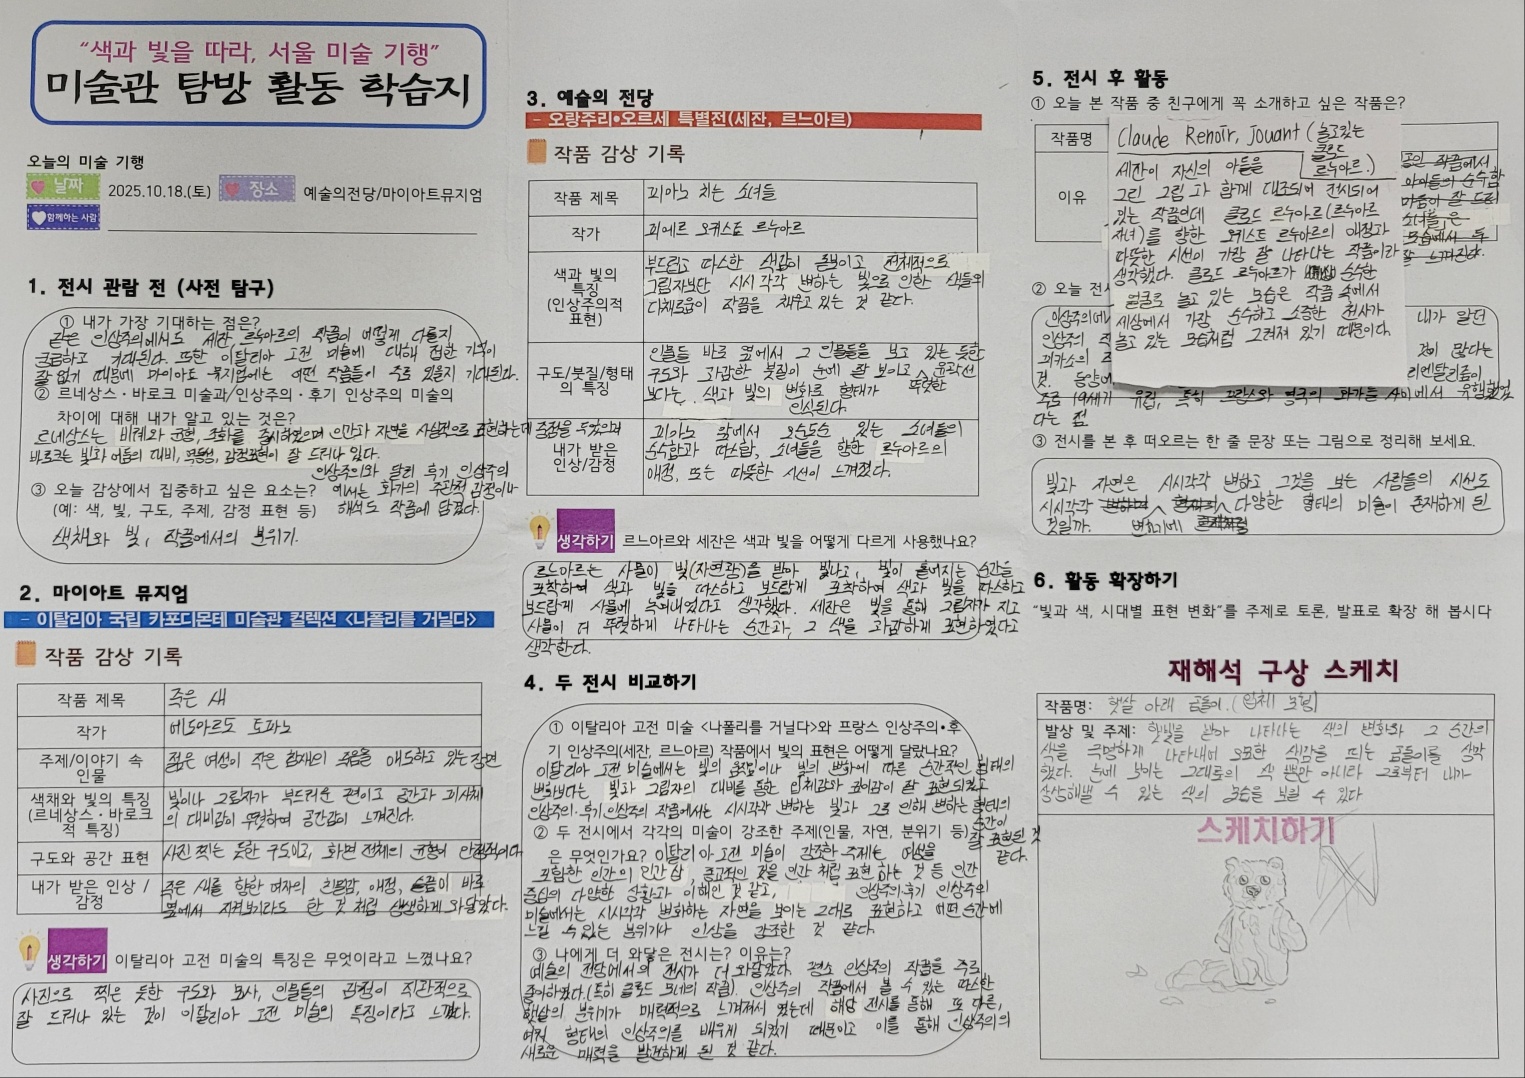 “색과 빛을 따라, 서울 미술 기행”
미술관 탐방 활동 학습지
오늘의 미술 기행
날짜 2025.10.18.(토) 장소 예술의전당/마이아트뮤지엄
함께하는 사람
1. 전시 관람 전 (사전 탐구)
① 내가 가장 기대하는 점은?
같은 인상주의에서도 세잔, 르누아르의 작품이 어떻게 다를지
궁금하고 기대된다. 또한 이탈리아 고전 미술에 대해 접한 기억이
잘 없기 때문에 마이아트 뮤지엄에는 어떤 작품들이 주로 있을지 기대된다.
② 르네상스·바로크 미술과/인상주의·후기 인상주의 미술의
차이에 대해 내가 알고 있는 것은?
르네상스는 비례와 균형, 조화를 중시하였으며 인간과 자연을 사실적으로 표현하는데 중점을 두었으며
바로크는 빛과 어둠의 대비, 역동성, 감정표현이 잘 드러나 있다.
인상주의와 달리 후기 인상주의
에서는 화가의 주관적 감정이나
해석도 작품에 담겼다.
③ 오늘 감상에서 집중하고 싶은 요소는?
(예: 색, 빛, 구도, 주제, 감정 표현 등)
색채와 빛, 작품에서의 분위기.
2. 마이아트 뮤지엄
- 이탈리아 국립 카포디몬테 미술관 컬렉션 <나폴리를 거닐다>
작품 감상 기록
작품 제목 죽은 새
작가 에도아르도 토파노
주제/이야기 속 인물 젊은 여성이 작은 존재의 죽음을 애도하고 있는 장면
색채와 빛의 특징 (르네상스·바로크적 특징) 빛이나 그림자가 부드러운 편이고 공간과 피사체
의 대비감이 뚜렷하여 공간감이 느껴진다.
구도와 공간 표현 사진 찍는 듯한 구도이고, 화면 전체의 균형이 안정적이다
내가 받은 인상 / 감정 죽은 새를 향한 여자의 친밀감, 애정, 슬픔이 바로
옆에서 지켜보기라도 한 것 처럼 생생하게 와닿았다.
생각하기 이탈리아 고전 미술의 특징은 무엇이라고 느꼈나요?
사진으로 찍은 듯한 구도와 묘사, 인물들의 감정이 직관적으로
잘 드러나 있는 것이 이탈리아 고전 미술의 특징이라고 느꼈다.
3. 예술의 전당
- 오랑주리•오르세 특별전(세잔, 르느아르)
작품 감상 기록
작품 제목 피아노 치는 소녀들
작가 피에르 오귀스트 르누아르
색과 빛의 특징 (인상주의적 표현) 부드럽고 따스한 색감이 돋보이고 전체적으로
그림자보단 시시각각 변하는 빛으로 인한 색들의
다채로움이 작품을 채우고 있는 것 같다.
구도/붓질/형태의 특징 인물들 바로 옆에서 그 인물들을 보고 있는 듯한
구도와 과감한 붓질이 눈에 잘 보이고 뚜렷한 윤곽선
보다는 색과 빛의 변화로 형태가
인식된다.
내가 받은 인상/감정 피아노 앞에서 오순도순 있는 소녀들의
순수함과 따스함, 소녀들을 향한 르누아르의
애정, 또는 따뜻한 시선이 느껴졌다.
생각하기 르느아르와 세잔은 색과 빛을 어떻게 다르게 사용했나요?
르느아르는 사물이 빛(자연광)을 받아 빛나고, 빛이 흩어지는 순간을
포착하여 색과 빛을 따스하고 보드랍게 포착하여 색과 빛을 따스하고
보드랍게 사물에 녹여내었다고 생각했다. 세잔은 빛을 통해 그림자가 지고
사물이 더 뚜렷하게 나타나는 순간과, 그 색을 과감하게 표현하였다고
생각한다.
4. 두 전시 비교하기
① 이탈리아 고전 미술 <나폴리를 거닐다>와 프랑스 인상주의•후
기 인상주의(세잔, 르느아르) 작품에서 빛의 표현은 어떻게 달랐나요?
이탈리아 고전 미술에서는 빛의 움직임이나 빛의 변화에 따른 순간적인 형태의
변화보다는 빛과 그림자의 대비를 통한 입체감과 깊이감이 잘 표현되었고
인상주의·후기인상주의 작품에서는 시시각각 변하는 빛과 그로 인해 변하는 형태의
순간이
잘 표현된 것
같다.
② 두 전시에서 각각의 미술이 강조한 주제(인물, 자연, 분위기 등)
은 무엇인가요? 이탈리아 고전 미술이 강조한 주제는 여성을
포함한 인간의 인간상, 종교적인 것을 인간 처럼 표현 하는 것 등 인간
중심의 다양한 상황과 이해인 것 같고, 인상주의·후기 인상주의
미술에서는 시시각각 변화하는 자연을 보이는 그대로 표현하고 어떤 순간에
느낄 수 있는 분위기나 인상을 강조한 것 같다.
③ 나에게 더 와닿은 전시는? 이유는?
예술의 전당에서의 전시가 더 와닿았다. 평소 인상주의 작품을 주로
좋아하였다.(특히 클로드 모네의 작품). 인상주의 작품에서 볼 수 있는 따스한
햇살의 분위기가 매력적으로 느껴져서 였는데 해당 전시를 통해 또 다른,
여러 형태의 인상주의를 배우게 되었기 때문이고 이를 통해 인상주의의
새로운 매력을 발견하게 된 것 같다.
5. 전시 후 활동
① 오늘 본 작품 중 친구에게 꼭 소개하고 싶은 작품은?
작품명 Claude Renoir, Jouant (놀고있는
클로드
르누아르.)
이유 세잔이 자신의 아들을
그린 그림과 함께 대조되어 전시되어
있는 작품인데 클로드 르누아르(르누아르
자녀)를 향한 오귀스트 르누아르의 애정과
따뜻한 시선이 가장 잘 나타나는 작품이라
생각했다. 클로드 르누아르가 순수한
얼굴로 놀고 있는 모습은 작품 속에서
세상에서 가장 순수하고 소중한 천사가
놀고 있는 모습처럼 그려져 있기 때문이다.
② 오늘 전시
인상주의에 내가 알던
인상주의 작
피카소의 것이 많다는
것. 동양에 리엔탈리즘이
주로 19세기 유럽, 특히 프랑스와 영국의 화가들 사이에서 유행했었
다는 점
③ 전시를 본 후 떠오르는 한 줄 문장 또는 그림으로 정리해 보세요.
빛과 자연은 시시각각 변하고 그것을 보는 사람들의 시선도
시시각각 변하기에 다양한 형태의 미술이 존재하게 된
것일까.
6. 활동 확장하기
“빛과 색, 시대별 표현 변화”를 주제로 토론, 발표로 확장 해 봅시다
재해석 구상 스케치
작품명: 햇살 아래 곰돌이. (입체 모형)
발상 및 주제: 햇빛을 받아 나타나는 색의 변화와 그 순간의
색을 극명하게 나타내어 오묘한 색감을 띄는 곰돌이를 생각
했다. 눈에 보이는 그대로의 색 뿐만 아니라 그로부터 내가
상상해낼 수 있는 색의 모습을 보일 수 있다
스케치하기